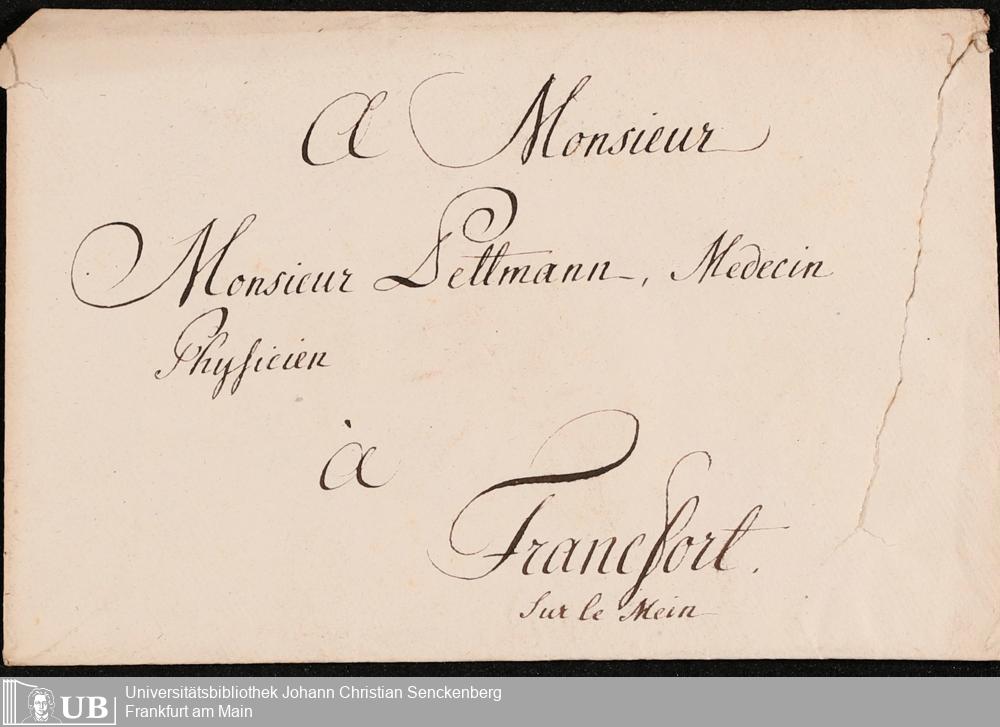 A Monsieur
Monsieur Pettmann, Medecin
Physicien
à
Francfort.
sur le Mein
UB
Universitätsbibliothek Johann Christian Senckenberg
Frankfurt am Main